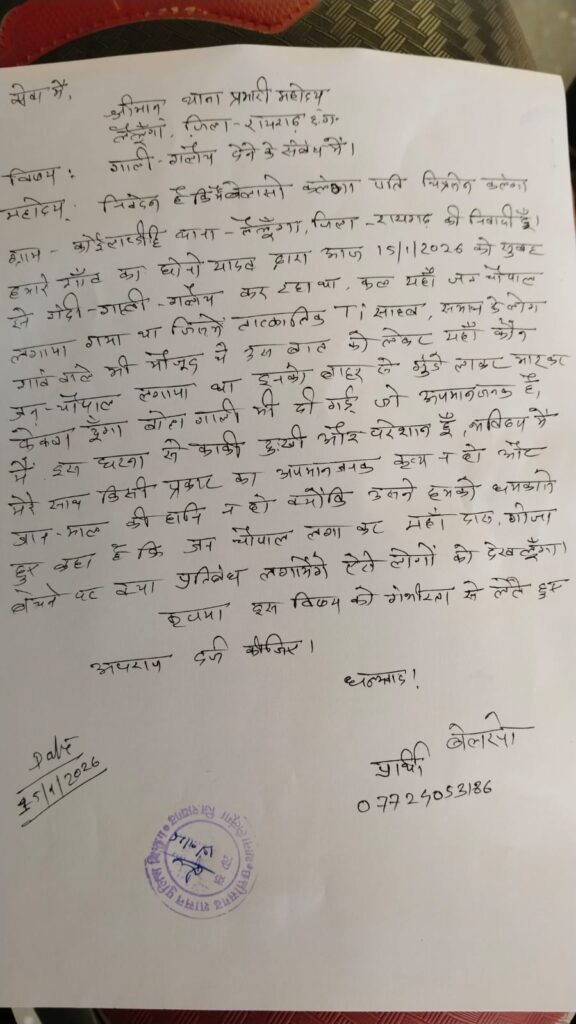 सेवा में,
श्रीमान् थाना प्रभारी महोदय
लैलूँगा, जिला - रायगढ़ छ.ग.
विषय : गाली - गलौच देने के संबंध में।
महोदय, निवेदन है कि मैं बेलासो कलेगा पति चित्रसेन कलेगा
ग्राम - थाना - लैलूँगा, जिला - रायगढ़ की निवासी हूँ।
हमारे गाँव का यादव द्वारा आज 15/1/2026 को सुबह
से गंदी - गाली - गलौच कर रहा था, कल यहाँ जन चौपाल
लगाया गया था जिसमें तात्कालिक Ti साहब, समाज के लोग
गांव वाले भी मौजूद थे उस बात को लेकर यहाँ कौन
जन - चौपाल लगाया था इनको बाहर से गुंडे लाकर मारकर
फेंकवा दूँगा बोला गाली भी दी गई जो अपमानजनक है,
मैं इस घटना से काफी दुःखी और परेशान हूँ, भविष्य में
मेरे साथ किसी प्रकार का अपमानजनक कृत्य न हो और
जान - माल की हानि न हो क्योंकि उसने हमको धमकाते
हुए कहा है कि जन चौपाल लगा कर यहाँ दारू, गांजा
बेचने पर क्या प्रतिबंध लगायेंगे ऐसे लोगों को देखलूँगा।
कृपया इस विषय को गंभीरता से लेते हुए
अपराध दर्ज कीजिए।
धन्यवाद!
Date
15/1/2026
प्रार्थी बेलासो
07724053186